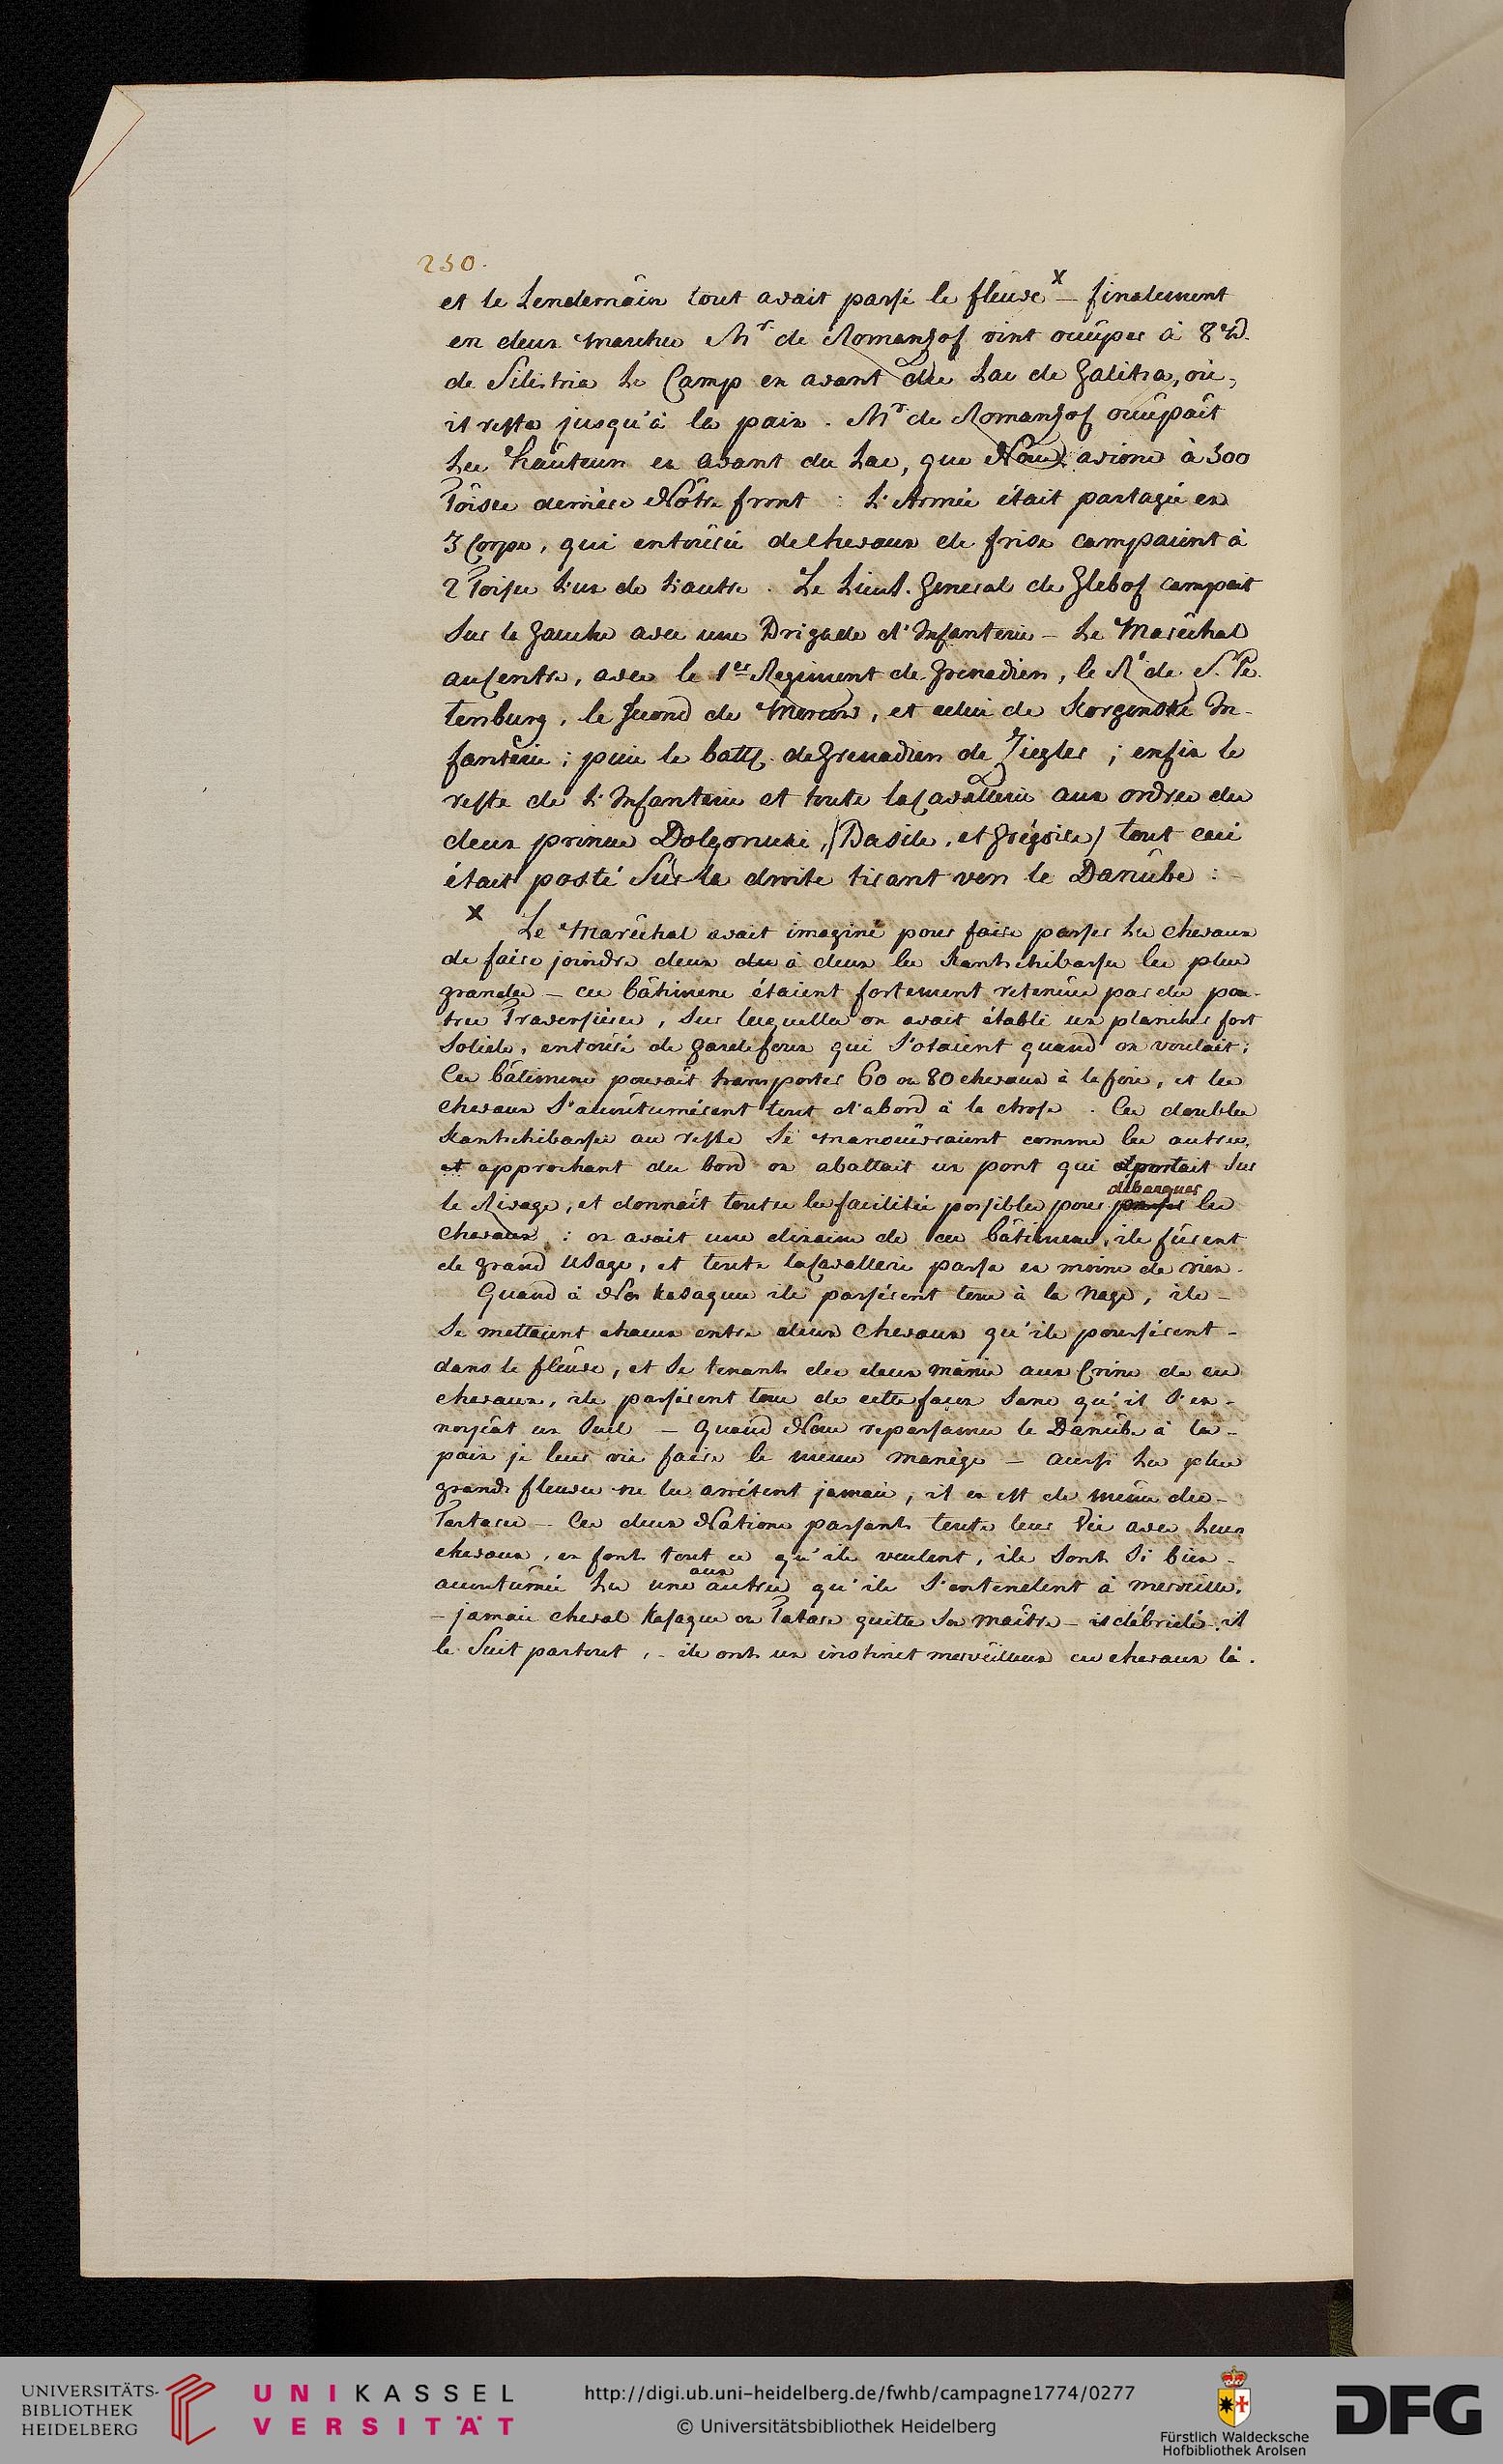 250.
et le Lendemâin tout avait passé le fleûve x — finalement
en deux marches Mr de Romanzof vint ocuûper à 8 W.
de Silistria Le Camp en avant du Lac de Galitza, où,
il resta jusqu'à la paix. Mr de Romanzof ocuûpâit
Les hâuteurs en avant du Lac, que Nous avions à 300
Toises derrière Nôtre front : L'Armée était partagée en
3 Corps, qui entoûrés de Chevaux de frise campaient à
2 Toises L'un de L'autre. Le Lieut. General de Glebof campait
Sur la Gauche avec une Brigade d'Infanterie — Le Marêchal
au Centre, avec le 1er Regiment de Grenadiers, le Rt de S. Pe
tersburg, le Second de Moscow, et celui de Korginski In-
fanterie ; puis le batt. de Grenadiers de Ziegler ; enfin le
reste de L'Infanterie et toute la Cavallerie aux ordres des
deux princes Dolgoruki, /Basile, et Grégoire/ tout ceci
était posté Sûr la droite tirant vers le Danûbe :
x Le Marêchal avait imaginé pour faire passer Les chevaux
de faire joindre deux à deux les Kantschibasses les plus
grandes — ces bâtimens étaient fortement retenûs par des pou-
tres Traversières, Sur lesquelles on avait établi un plancher fort
Solide, entoûré de gardefoux qui S'otaient quand on voulait ;
Ces bâtimens pouvait transporter 60 ou 80 chevaux à la fois, et les
chevaux S'acoûtumérent tout d'abord à la chose. Ces doubles
Kantschibasses au reste Se manoeûvraient comme les autres,
et approchant du bord on abattait un pont qui portait Sur
le Rivage, et donnâit toutes les facilités possibles pour passer débarquer les
chevaux : on avait une dixaine de ces bâtimens, ils fûrent
de grand Usage, et toute la Cavallerie passa en moins de rien.
Quand à Nos Kosaques ils passérent tous à la Nage, ils
Se mettaient chacun entre deux Chevaux qu'ils poussérent
dans le fleûve, et Se tenant des deux mâins aux Crins de ces
chevaux, ils passérent tous de cette façon Sans qu'il S'en
noyeât un Seul — Quand Nous repassames le Danûbe à la
paix je leur vis faire le même manège — aussi Les plus
grands fleuves ne les arrêtent jamais, il en est de même des
Tartares — Ces deux Nations passant toute leur Vie avec Leurs
chevaux, en font tout ce qu'ils veulent, ils Sont Si bien
acoutûmés Les uns aux âutres qu'ils S'entendent à merveille,
— jamais cheval Kosaque ou Tatare quitte Son maître — débridé, il
le Suit partout, — ils ont un instinct merveilleux ces chevaux là.
UNIVERSITÄTS-
BIBLIOTHEK
HEIDELBERG
UNIKASSEL
VERSITÄT
http://digi.ub.uni-heidelberg.de/fwhb/campagne1774/0277
© Universitätsbibliothek Heidelberg
Fürstlich Waldecksche
Hofbibliothek Arolsen
DFG